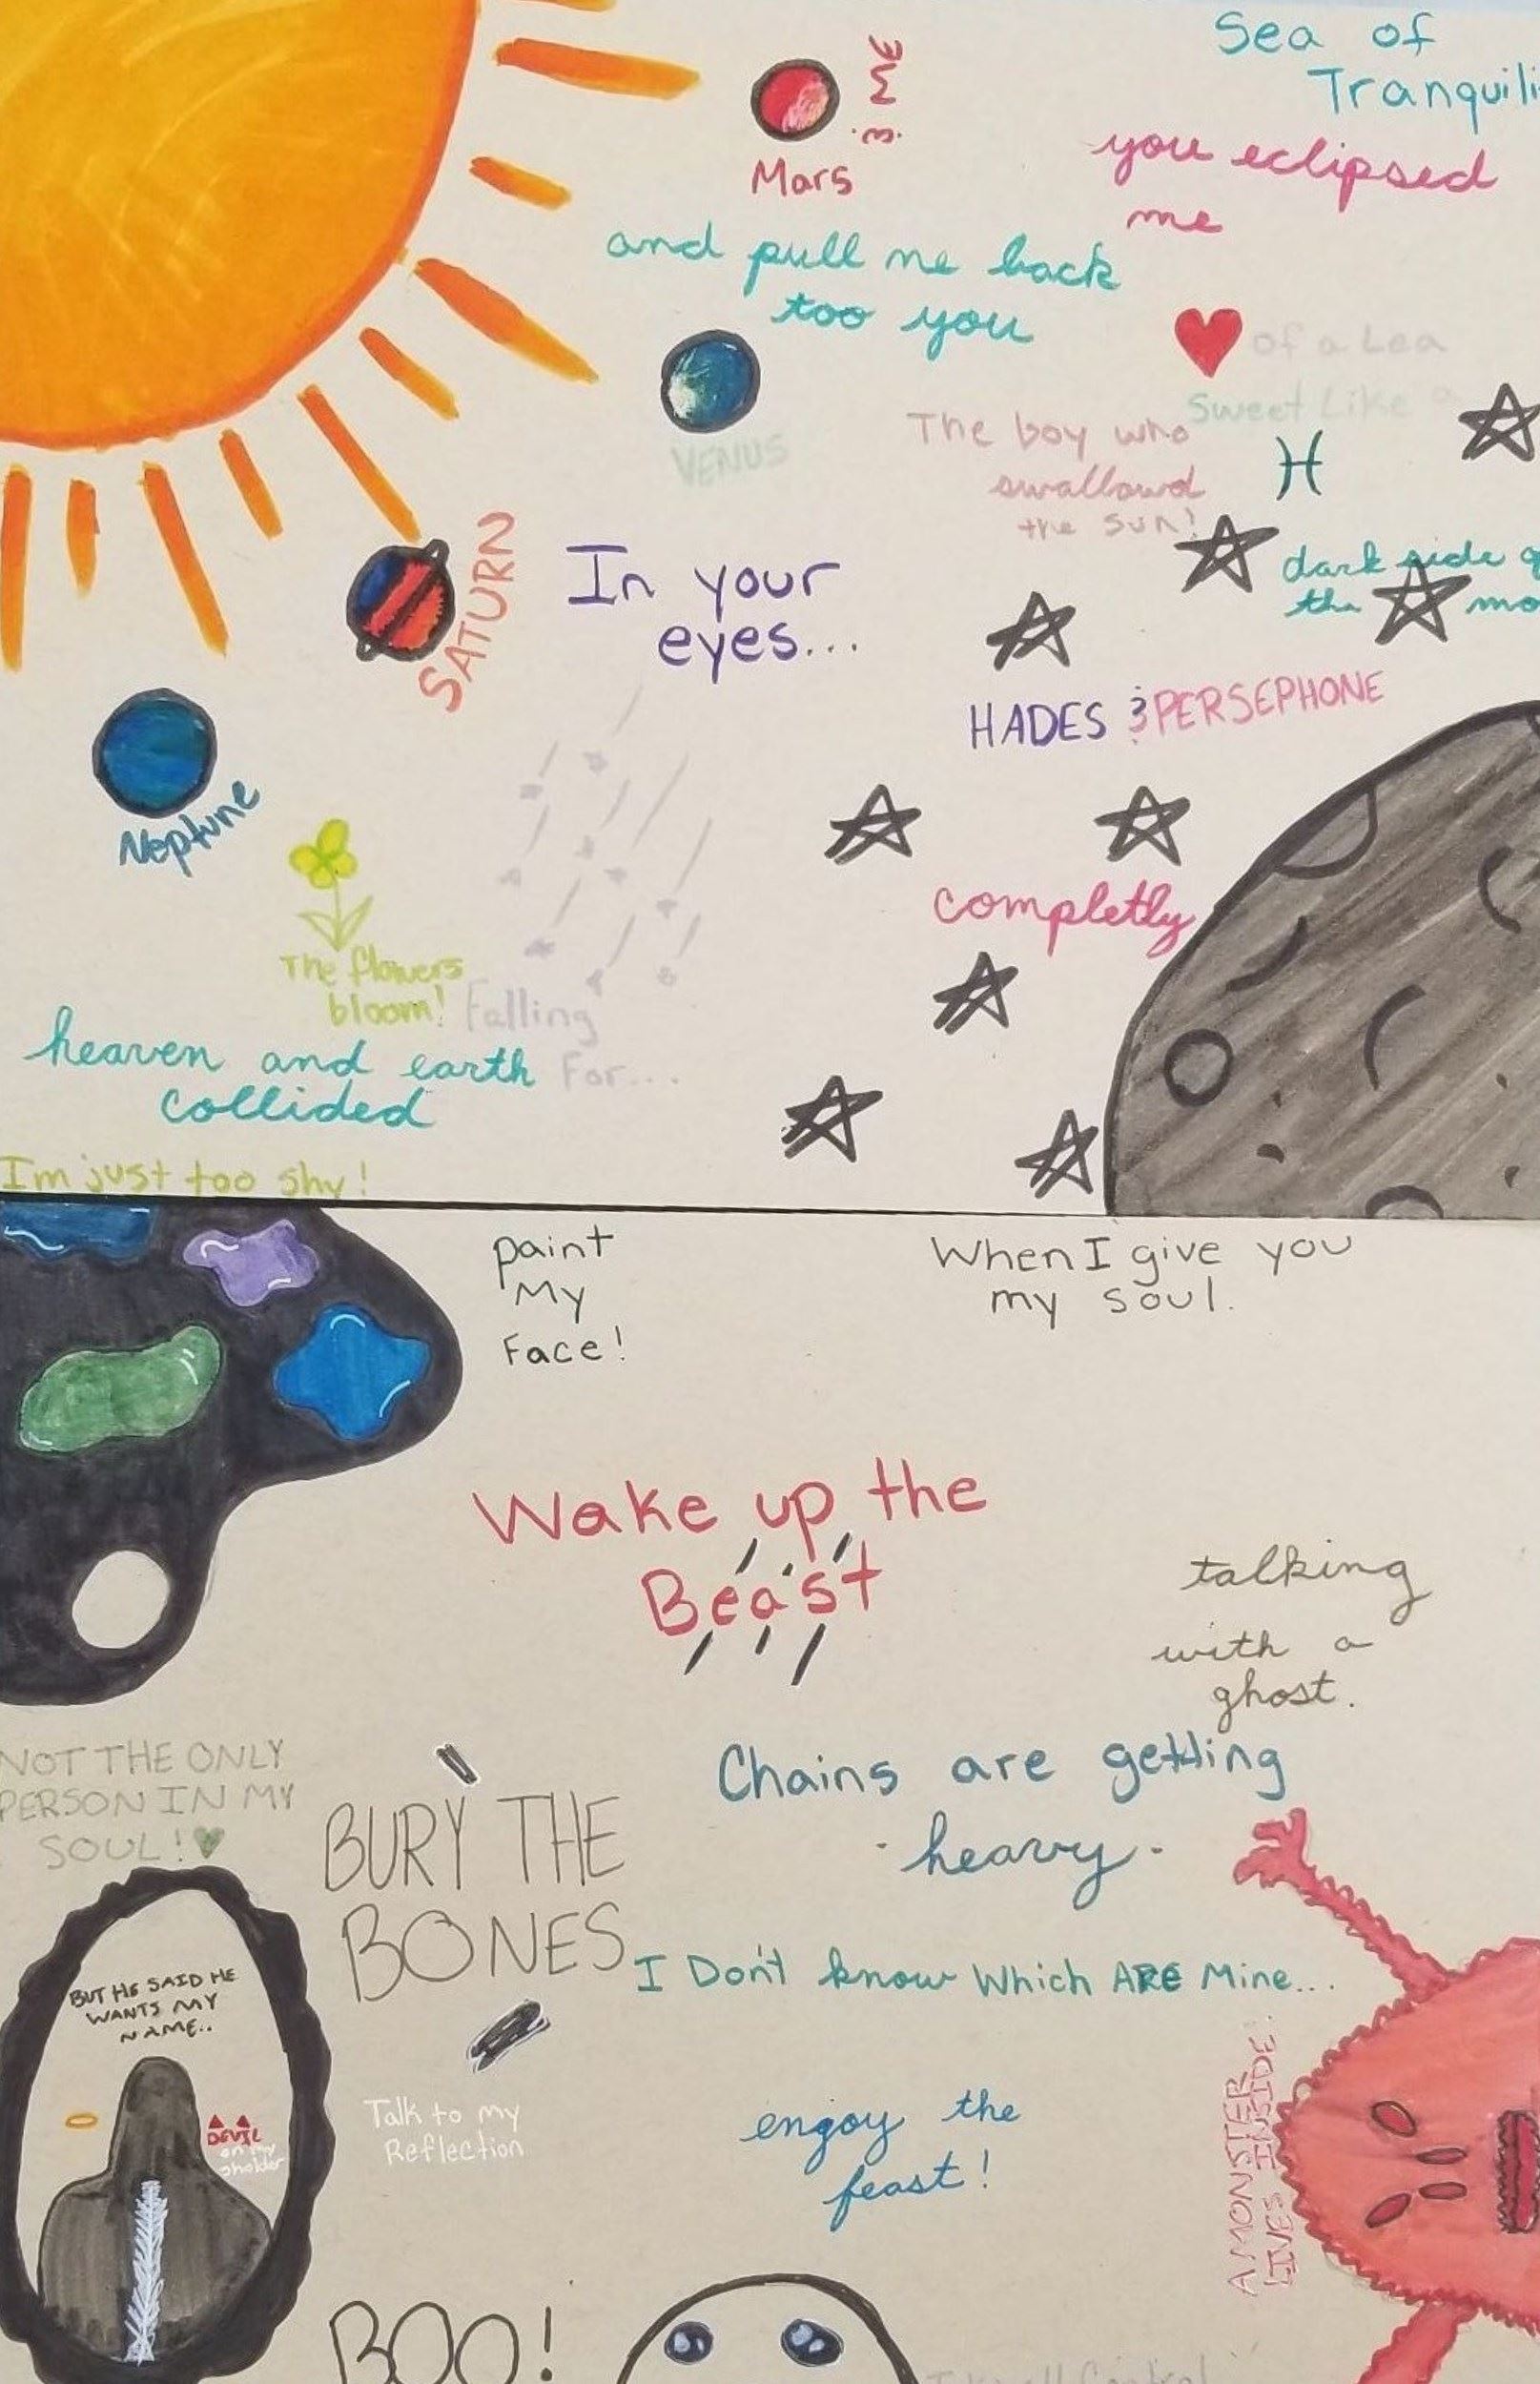 Sea of
Tranquili
& ME
Mars
you eclipsed
me
and pull me back
too you
of a Lea
Sweet Like a
VENUS
The boy who
swallowd
the sun!
dark side o
the mo
SATURN
In your
eyes...
HADES & PERSEPHONE
Neptune
completly
The flowers
bloom!
Falling
For...
heaven and earth
collided
I'm just too shy!
paint
My
Face!
When I give you
my soul.
Wake up the
Beast
talking
with a
ghost.
NOT THE ONLY
PERSON IN MY
SOUL!
Chains are getting
heavy
BURY THE
BONES
I Don't know Which ARE Mine...
BUT HE SAID HE
WANTS MY
NAME..
DEVIL
on my
sholder
Talk to my
Reflection
enjoy the
feast!
A MONSTER
LIVES INSIDE!
BOO!
Control